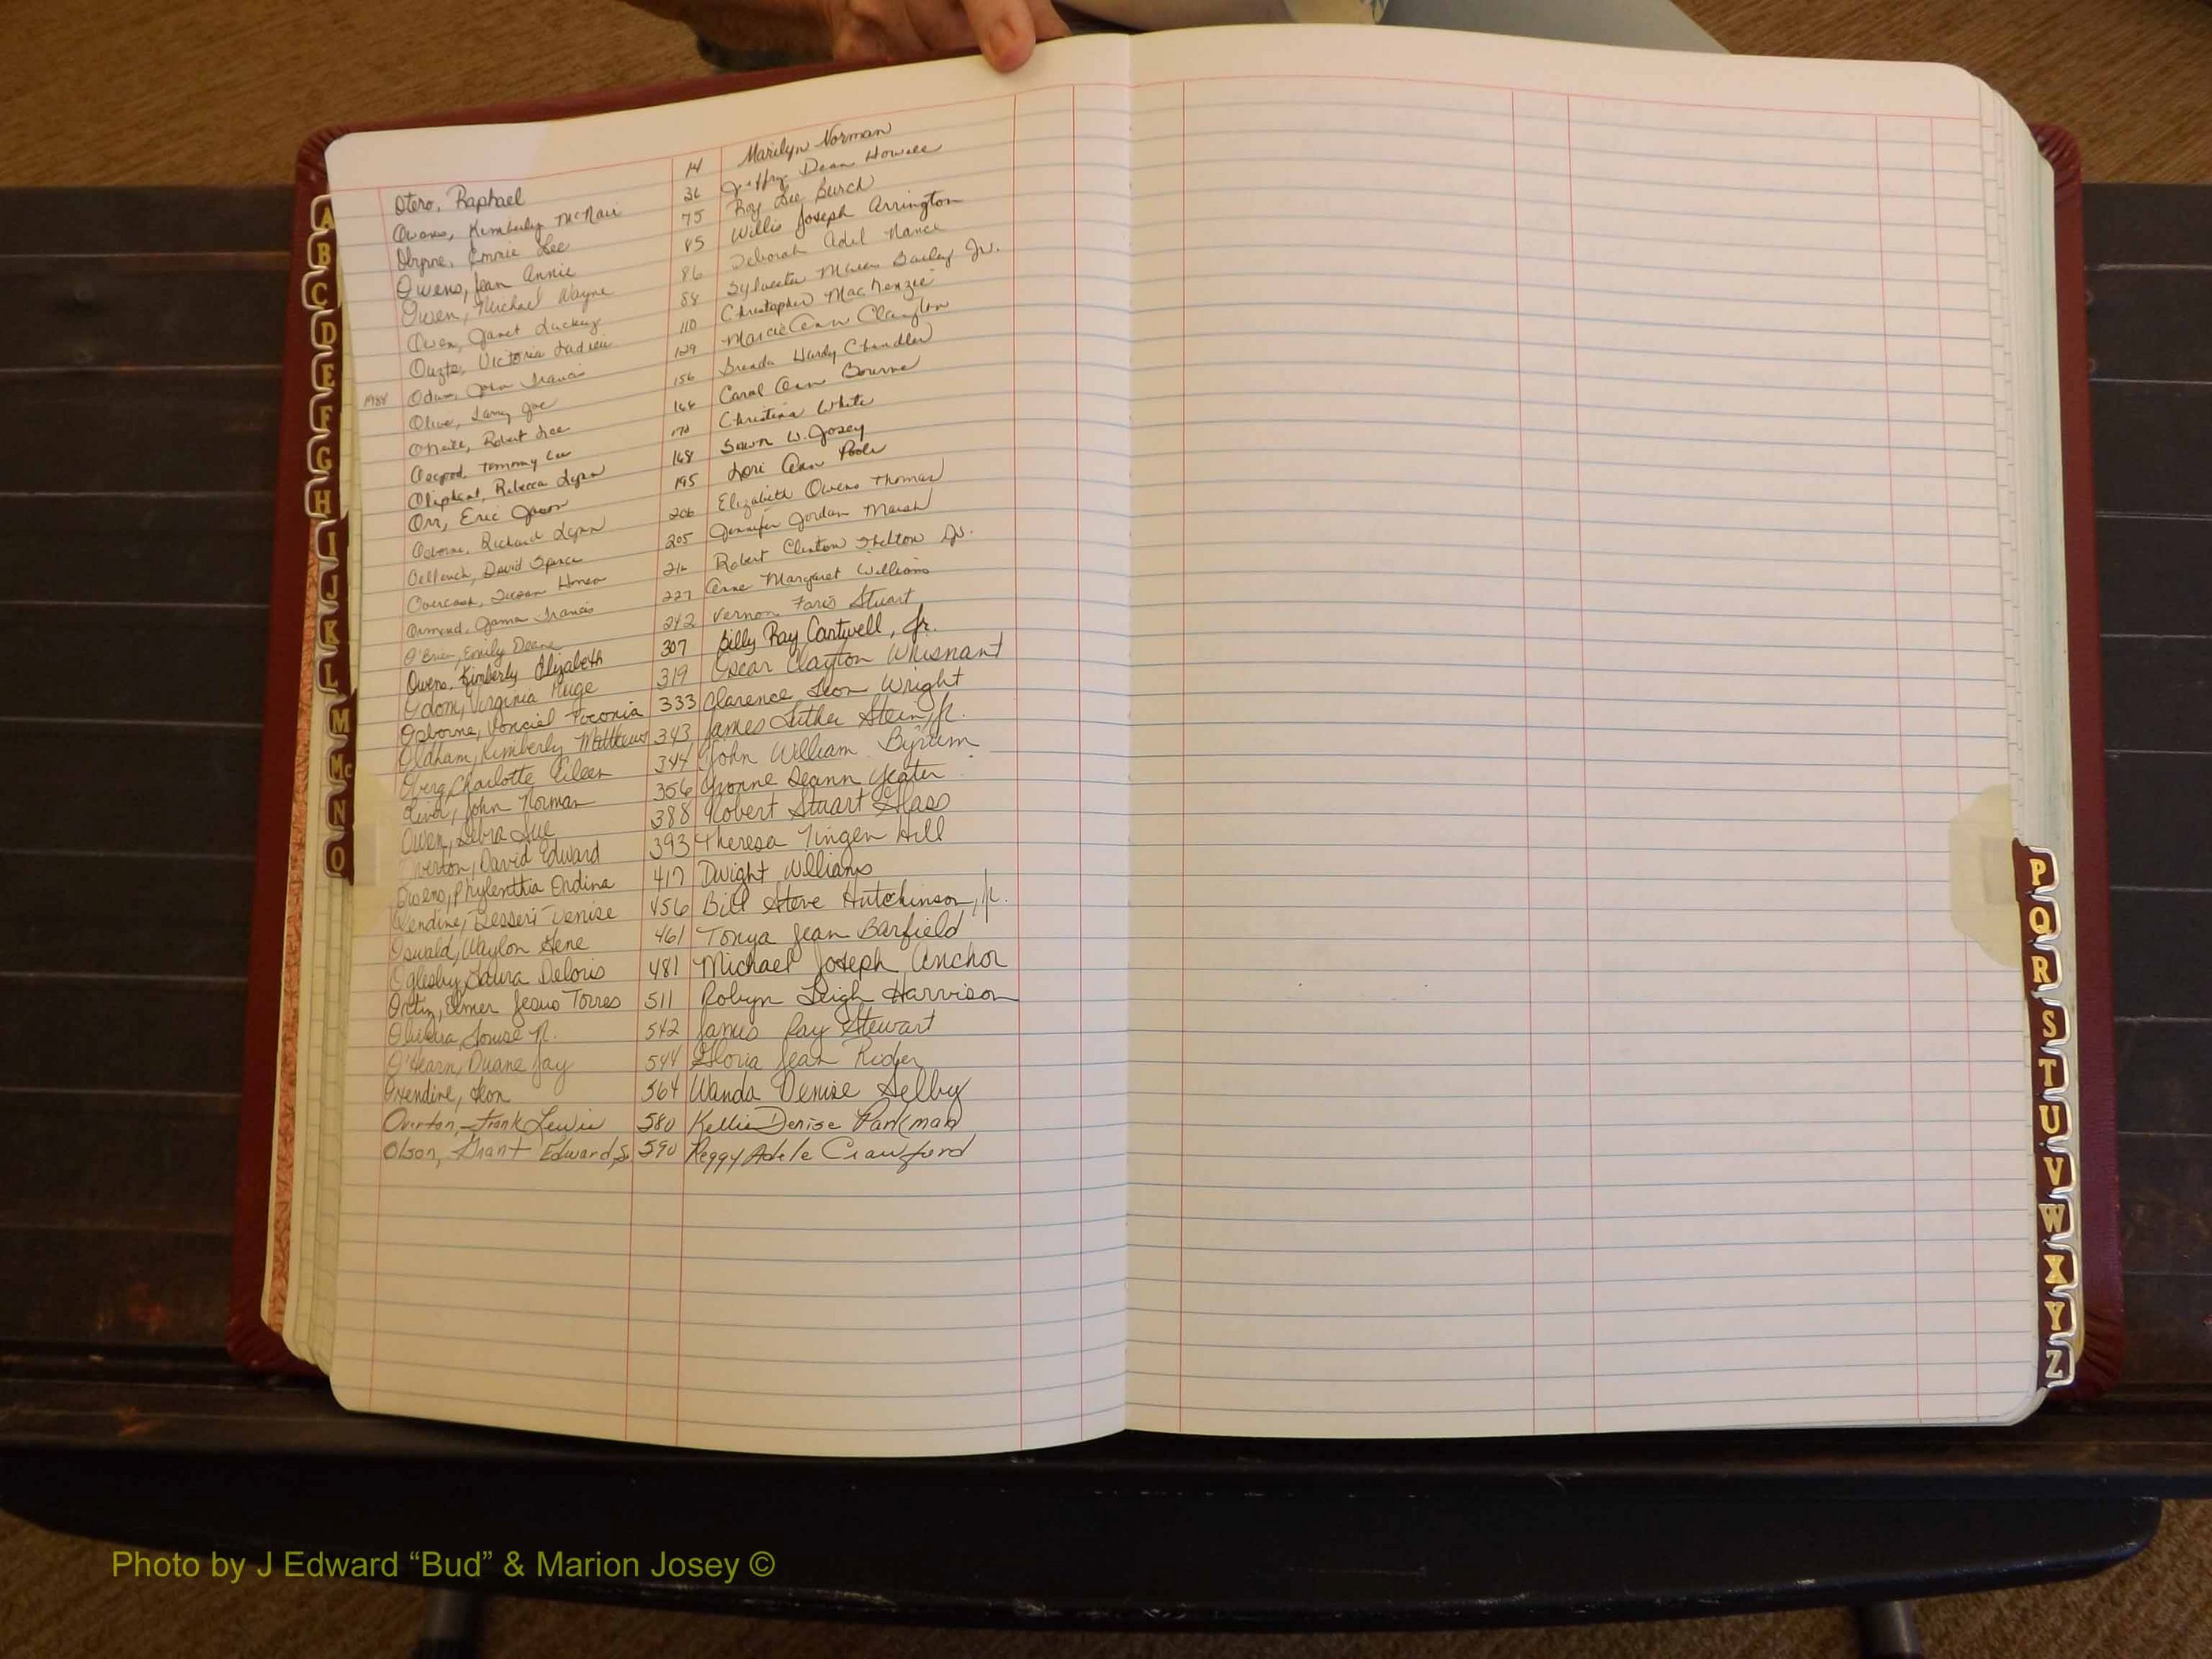 Otero, Raphael 14 Marilyn Norman
Owens, Kimberly McNair 36 Jeffry Dean Howell
Obyrne, Emmie Lee 75 Roy Lee Burch
Owens, Jean Annie 85 Willis Joseph Arrington
Owen, Michael Wayne 86 Deborah Adel Nance
Owen, Janet Luckey 88 Sylvester Bailey Jr.
Ouzts, Victoria 110 Christopher MacKenzie
1984 Odum, John Francis 129 Marcie Ann Clayton
Oliver, Larry Joe 156 Brenda Hardy Chandler
O'Neill, Robert Lee 164 Carol Ann Bourne
Osgood, Tommy Lee 170 Christina White
Oliphant, Rebecca Lynn 168 W. Josey
Orr, Eric Jason 195 Lori Ann Poole
Osborne, Richard Lynn 206 Elizabeth Owens Thomas
David Spence 205 Jennifer Jordan Marsh
Overcash, Susan 216 Robert Clinton Shelton Jr.
Ormond, James Francis 227 Anne Margaret Williams
O'Brien, Emily Deane 242 Vernon Faris Stuart
Owens, Kimberly Elizabeth 307 Billy Ray Cantwell, Jr.
Odom, Virginia Huge 319 Oscar Clayton Whisnant
Osborne, Vonciel 333 Clarence Leon Wright
Oldham, Kimberly Matthews 343 James Luther Stein, Jr.
Oberg, Charlotte Eileen 344 John William Byrum
Oliver, John Norman 356 Yvonne Deann Yeater
Owen, Debra Sue 388 Robert Stuart Glass
Overton, David Edward 393 Theresa Tingen Hill
Owens, Phylenthia Ondina 417 Dwight Williams
Oxendine, Besseri Denise 456 Bill Steve Hutchinson, Jr.
Oswald, Waylon Gene 461 Tonya Jean Barfield
Oglesby, Laura Deloris 481 Michael Joseph Anchor
Ortiz, Elmer Jesus Torres 511 Robyn Leigh Harvison
Oliveira, Louise N. 542 James Ray Stewart
O'Hearn, Duane Jay 544 Gloria Jean Rider
Oxendine, Leon 564 Wanda Denise Selby
Overton, Frank Lewis 580 Kellie Denise Parkman
Olson, Grant Edward, S. 590 Peggy Adele Crawford
A
B
C
D
E
F
G
H
I
J
K
L
M
Mc
N
O
P
Q
R
S
T
U
V
W
X
Y
Z
Photo by J Edward “Bud” & Marion Josey ©